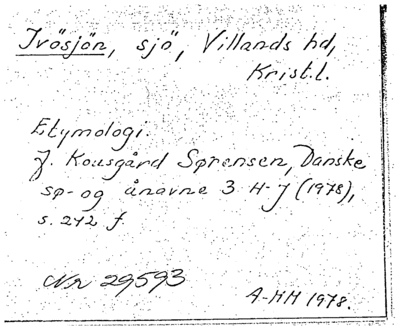 Ivösjön, sjö, Villands hd,
Krist.l.
Etymologi.
J. Kousgård Sørensen, Danske
sø- og ånavne 3 H-J (1978),
s. 272 f.
Nr 29593
A-MH 1978.